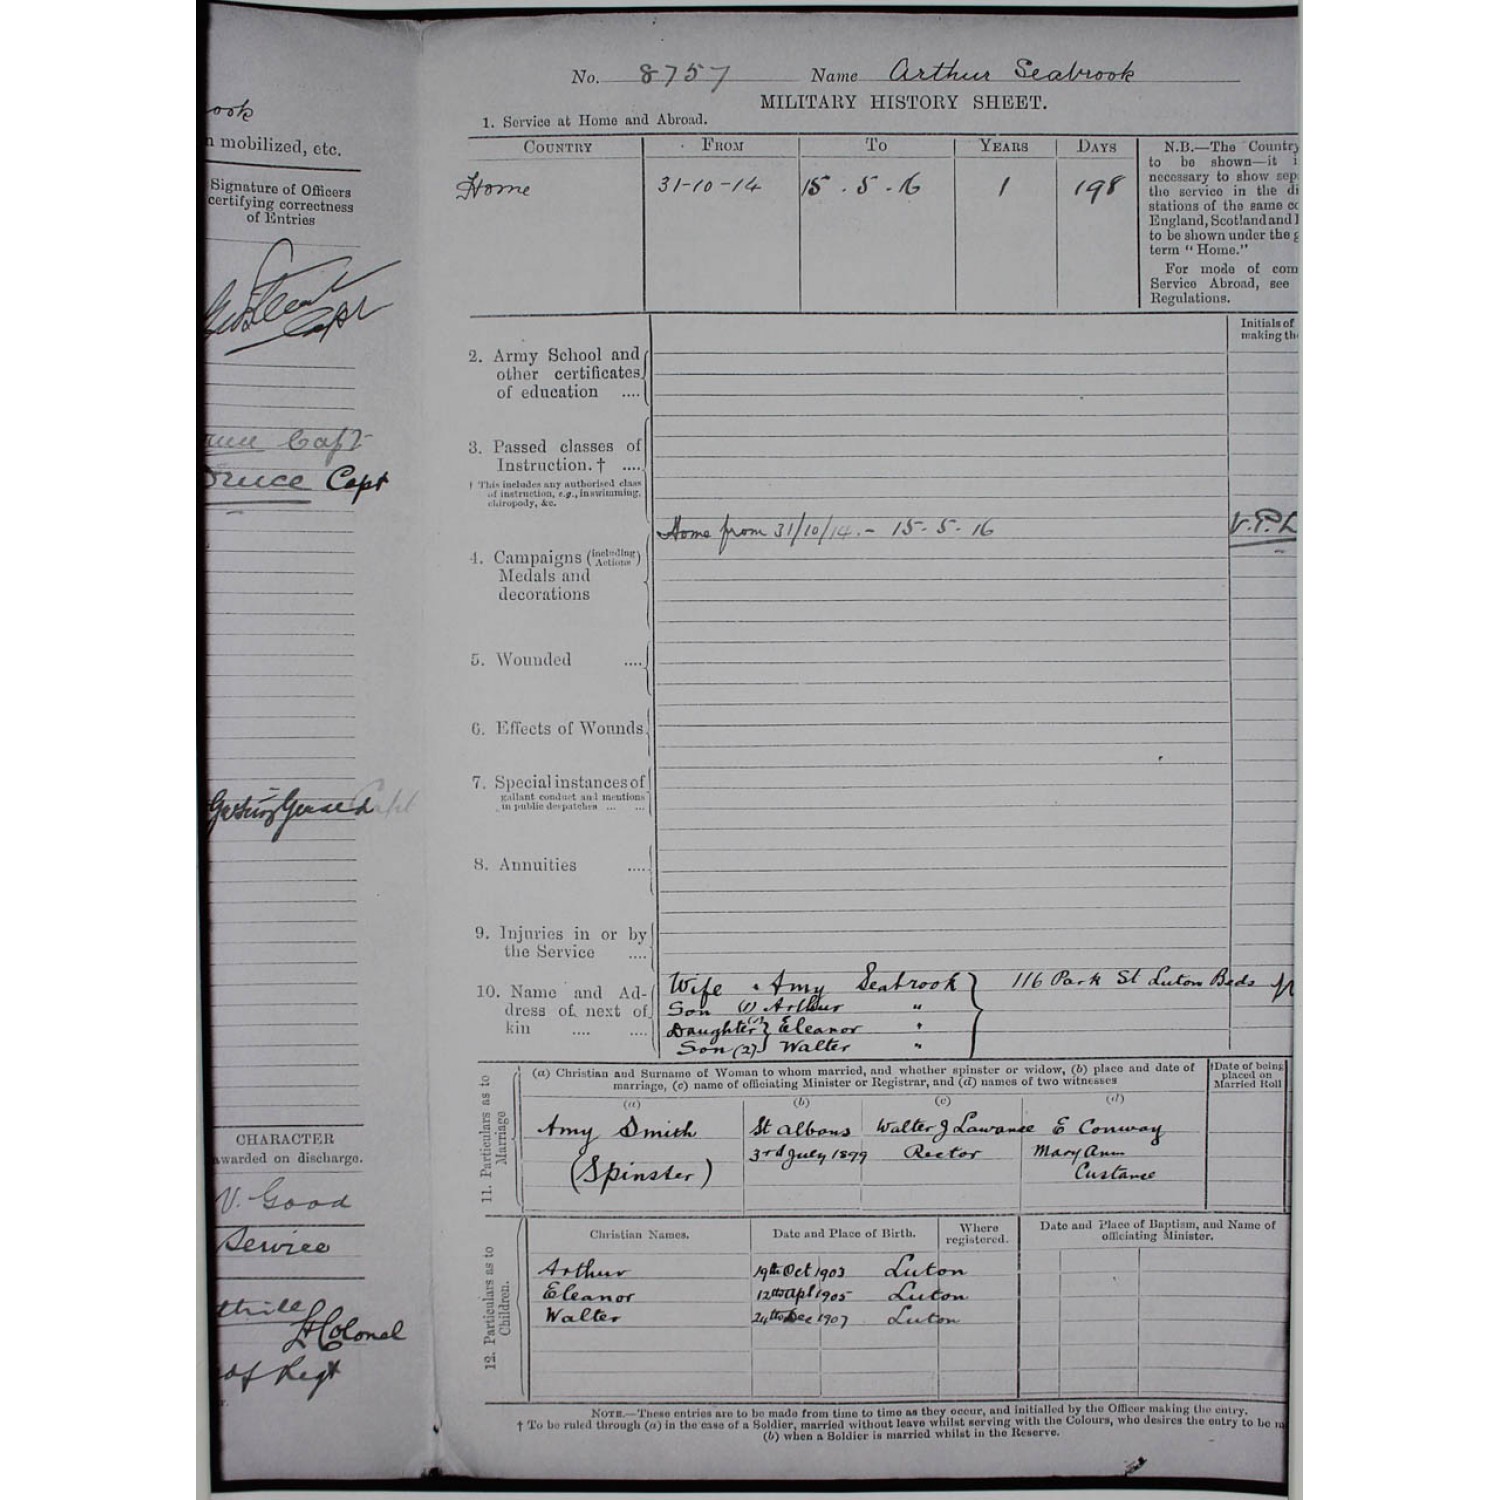 No. 8757 Name Arthur Seabrook
MILITARY HISTORY SHEET.
1. Service at Home and Abroad.
COUNTRY FROM TO YEARS DAYS
Home 31-10-14 15.5.16 1 198
N.B.—The Country
to be shown—it i
necessary to show sep
the service in the di
stations of the same co
England, Scotland and I
to be shown under the g
term "Home."
For mode of com
Service Abroad, see
Regulations.
Initials of
making th
2. Army School and
other certificates
of education ....
3. Passed classes of
Instruction. † ....
† This includes any authorised class
of instruction, e.g., in swimming,
chiropody, &c.
Home from 31/10/14.- 15-5-16 V.P.L
4. Campaigns (including Actions)
Medals and
decorations
5. Wounded ....
6. Effects of Wounds
7. Special instances of
gallant conduct and mentions
in public despatches ... ...
8. Annuities ....
9. Injuries in or by
the Service ....
10. Name and Ad-
dress of next of
kin .... ....
Wife Amy Seabrook } 116 Park St Luton Beds
Son (1) Arthur "
Daughter (1) } Eleanor "
Son (2) } Walter "
11. Particulars as to
Marriage
(a) Christian and Surname of Woman to whom married, and whether spinster or widow, (b) place and date of
marriage, (c) name of officiating Minister or Registrar, and (d) names of two witnesses
†Date of being
placed on
Married Roll
(a) (b) (c) (d)
Amy Smith St Albans Walter J Lawance E Conway
(Spinster) 3rd July 1899 Rector Mary Ann
Custance
12. Particulars as to
Children.
Christian Names. Date and Place of Birth. Where
registered. Date and Place of Baptism, and Name of
officiating Minister.
Arthur 19th Oct 1903 Luton
Eleanor 12th Apl 1905 Luton
Walter 24th Dec 1907 Luton
NOTE.—These entries are to be made from time to time as they occur, and initialled by the Officer making the entry.
† To be ruled through (a) in the case of a Soldier, married without leave whilst serving with the Colours, who desires the entry to be m
(b) when a Soldier is married whilst in the Reserve.
ook
n mobilized, etc.
Signature of Officers
certifying correctness
of Entries
Capt
Capt
Bruce Capt
Capt
CHARACTER
awarded on discharge.
V. Good
Service
Lt Colonel
of Regt